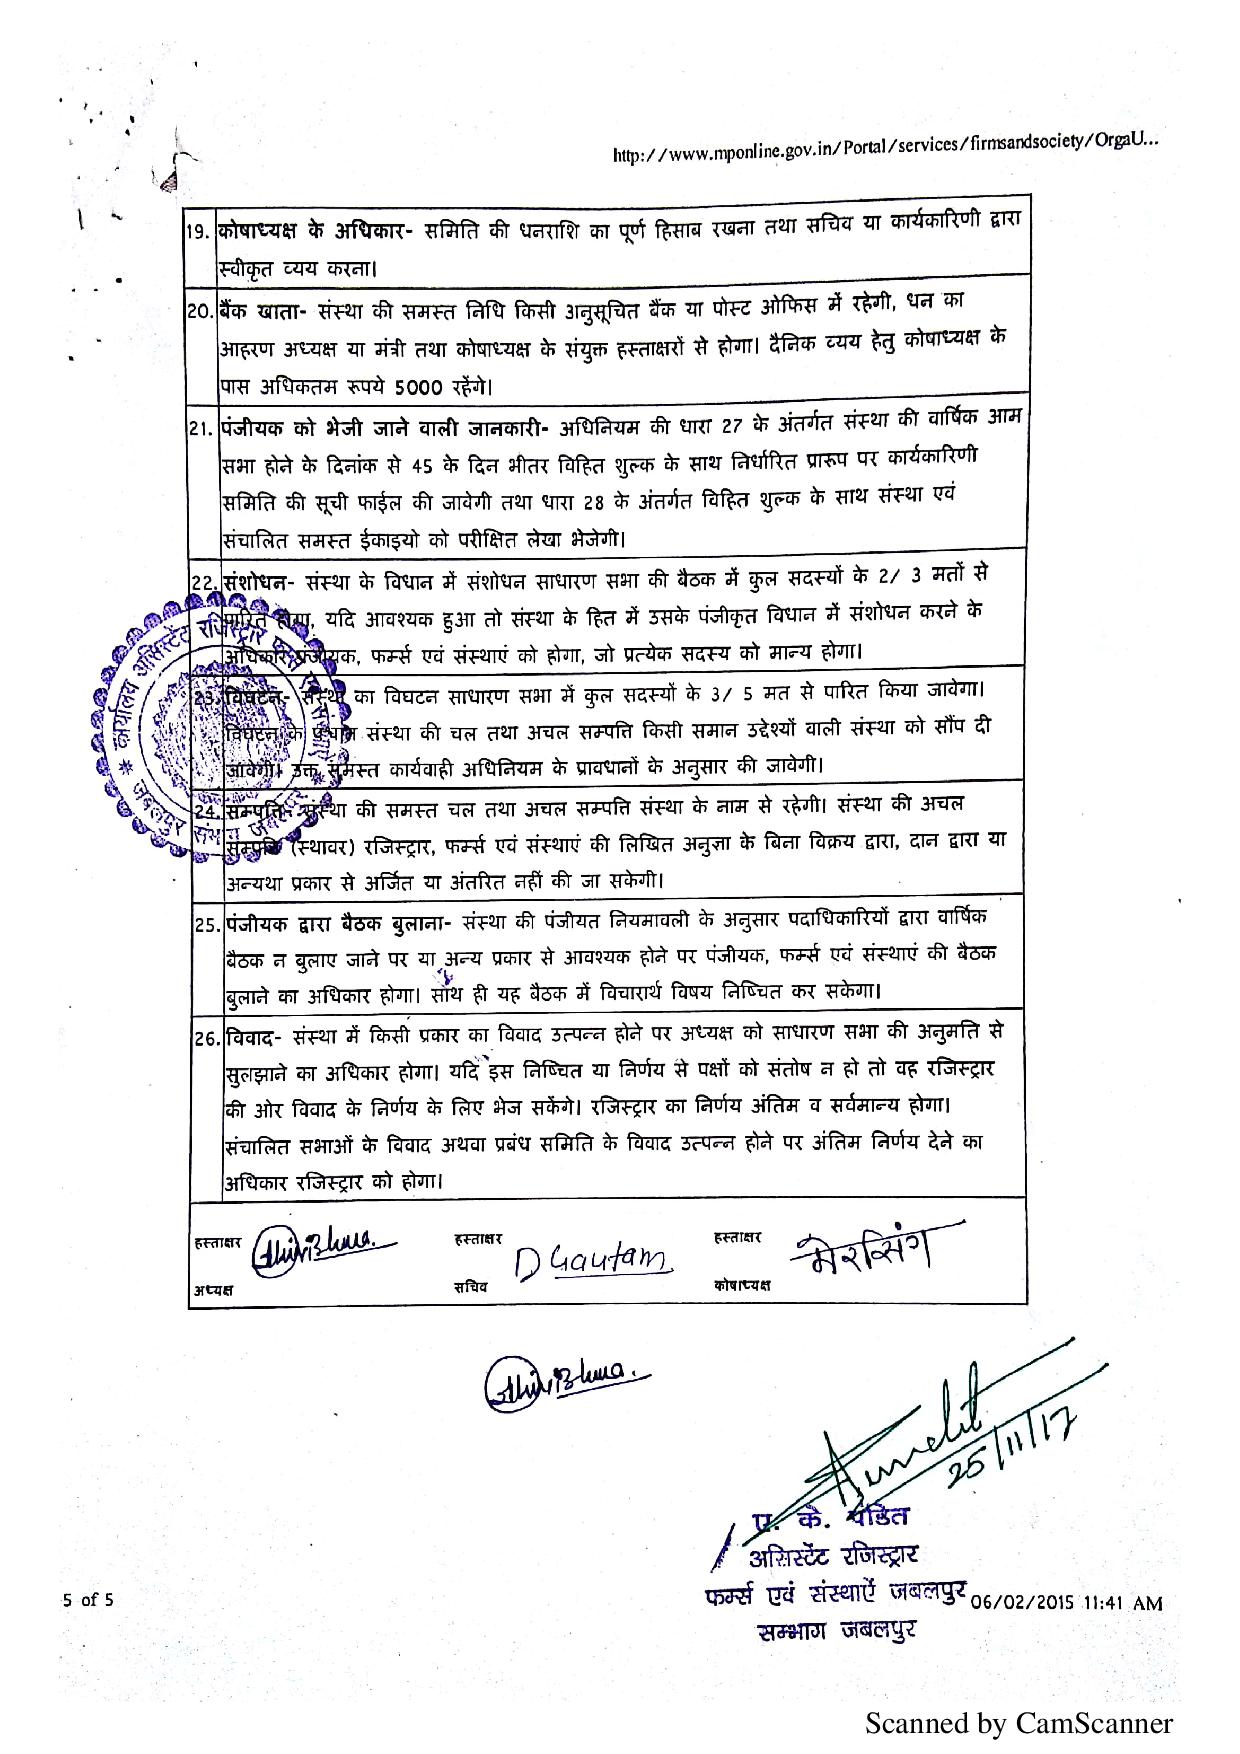 http://www.mponline.gov.in/Portal/services/firmsandsociety/OrgaU...
19. कोषाध्यक्ष के अधिकार- समिति की धनराशि का पूर्ण हिसाब रखना तथा सचिव या कार्यकारिणी द्वारा
स्वीकृत व्यय करना।
20. बैंक खाता- संस्था की समस्त निधि किसी अनुसूचित बैंक या पोस्ट ओफिस में रहेगी, धन का
आहरण अध्यक्ष या मंत्री तथा कोषाध्यक्ष के संयुक्त हस्ताक्षरों से होगा। दैनिक व्यय हेतु कोषाध्यक्ष के
पास अधिकतम रूपये 5000 रहेंगे।
21. पंजीयक को भेजी जाने वाली जानकारी- अधिनियम की धारा 27 के अंतर्गत संस्था की वार्षिक आम
सभा होने के दिनांक से 45 के दिन भीतर विहित शुल्क के साथ निर्धारित प्रारूप पर कार्यकारिणी
समिति की सूची फाईल की जावेगी तथा धारा 28 के अंतर्गत विहित शुल्क के साथ संस्था एवं
संचालित समस्त ईकाइयो को परीक्षित लेखा भेजेगी।
22. संशोधन- संस्था के विधान में संशोधन साधारण सभा की बैठक में कुल सदस्यों के 2/ 3 मतों से
पारित होगा, यदि आवश्यक हुआ तो संस्था के हित में उसके पंजीकृत विधान में संशोधन करने के
अधिकार पंजीयक, फर्म्स एवं संस्थाएं को होगा, जो प्रत्येक सदस्य को मान्य होगा।
23. विघटन- संस्था का विघटन साधारण सभा में कुल सदस्यों के 3/ 5 मत से पारित किया जावेगा।
विघटन के पश्चात संस्था की चल तथा अचल सम्पत्ति किसी समान उद्देश्यों वाली संस्था को सौंप दी
जावेगी। उक्त समस्त कार्यवाही अधिनियम के प्रावधानों के अनुसार की जावेगी।
24. सम्पत्ति- संस्था की समस्त चल तथा अचल सम्पत्ति संस्था के नाम से रहेगी। संस्था की अचल
सम्पत्ति (स्थावर) रजिस्ट्रार, फर्म्स एवं संस्थाएं की लिखित अनुज्ञा के बिना विक्रय द्वारा, दान द्वारा या
अन्यथा प्रकार से अर्जित या अंतरित नहीं की जा सकेगी।
25. पंजीयक द्वारा बैठक बुलाना- संस्था की पंजीयत नियमावली के अनुसार पदाधिकारियों द्वारा वार्षिक
बैठक न बुलाए जाने पर या अन्य प्रकार से आवश्यक होने पर पंजीयक, फर्म्स एवं संस्थाएं की बैठक
बुलाने का अधिकार होगा। साथ ही यह बैठक में विचारार्थ विषय निष्चित कर सकेगा।
26. विवाद- संस्था में किसी प्रकार का विवाद उत्पन्न होने पर अध्यक्ष को साधारण सभा की अनुमति से
सुलझाने का अधिकार होगा। यदि इस निष्चित या निर्णय से पक्षों को संतोष न हो तो वह रजिस्ट्रार
की ओर विवाद के निर्णय के लिए भेज सकेंगे। रजिस्ट्रार का निर्णय अंतिम व सर्वमान्य होगा।
संचालित सभाओं के विवाद अथवा प्रबंध समिति के विवाद उत्पन्न होने पर अंतिम निर्णय देने का
अधिकार रजिस्ट्रार को होगा।
कार्यालय असिस्टेंट रजिस्ट्रार फर्म्स एवं संस्थाएं
* जबलपुर संभाग जबलपुर *
हस्ताक्षर हस्ताक्षर D Gautam हस्ताक्षर
अध्यक्ष सचिव कोषाध्यक्ष
25/11/17
ए. के. पंडित
असिस्टेंट रजिस्ट्रार
फर्म्स एवं संस्थाऐं जबलपुर
सम्भाग जबलपुर
5 of 5
06/02/2015 11:41 AM
Scanned by CamScanner